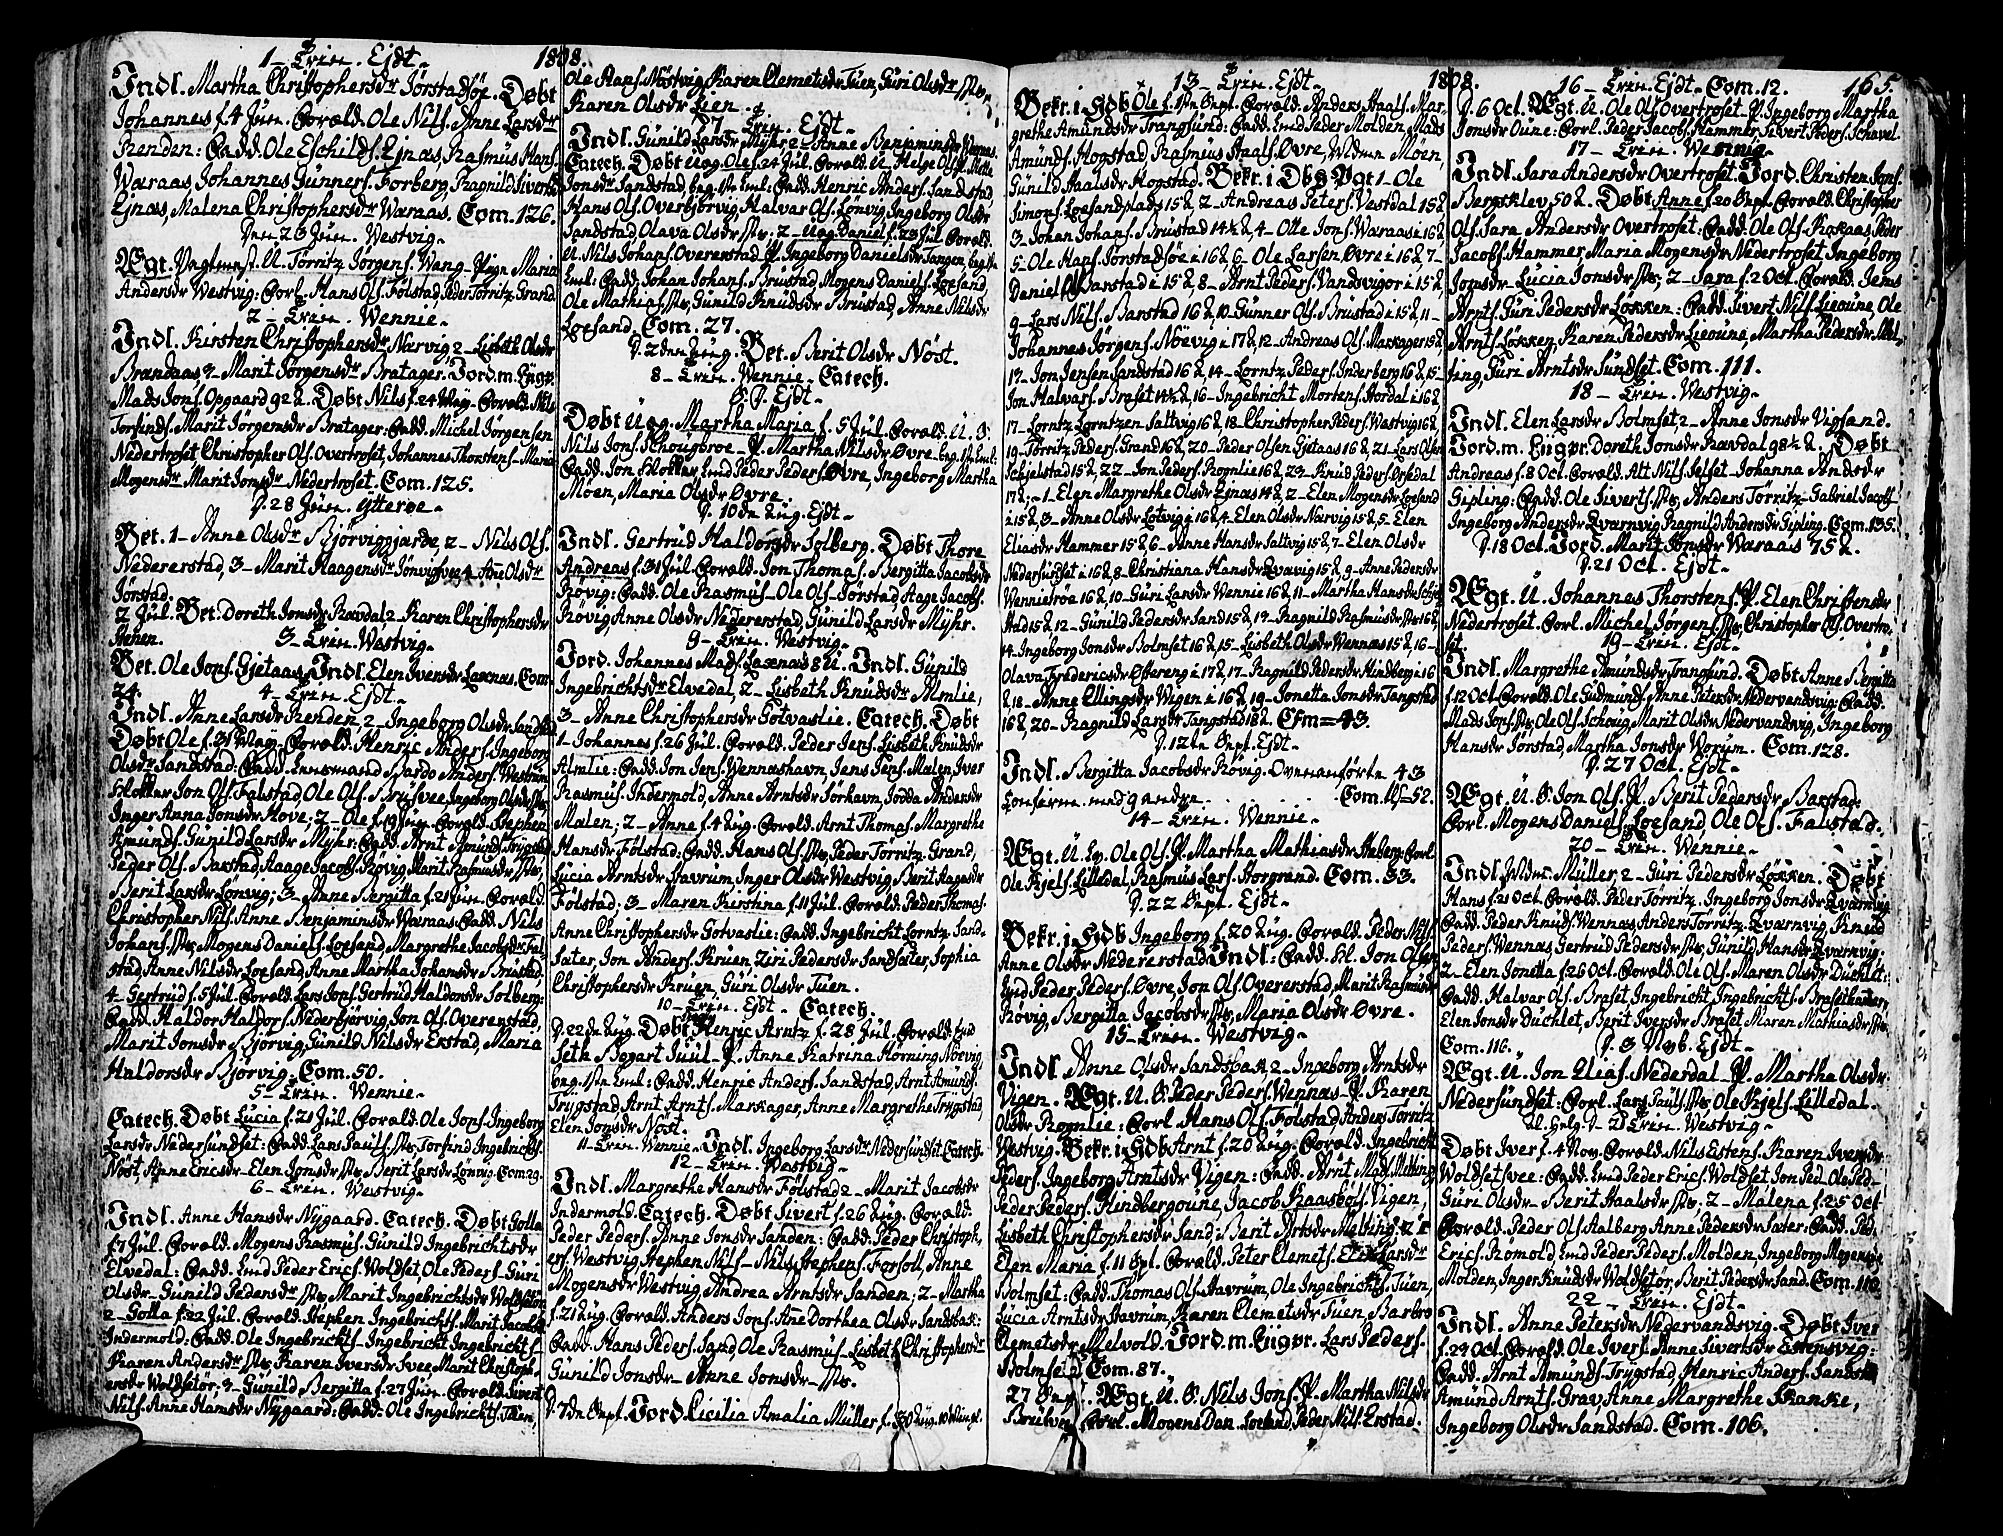 1 - Trin. Ejdt.
1808.
Indl. Martha Christophersdr Jørstadsøe. Døbt
Johannes f. 4 Jun. Foræld. Ole Nils. Anne Larsdr
Renden: Fadd. Ole Eschilds. Ejnæs, Rasmus Hans.
Waraas, Johannes Gunners. Forberg, Ragnild Sivertsdr
Ejnæs, Malena Christophersdr Wærnas. Com. 126.
Den 23 Jun. Westvig.
Ægt. U. Torritz Jørgens. Wang - Pign Maria
Andersdr Westvig: Forl. Hans Ols. Følstad Peder Torritz. Grand
2 - Trin. Wennie.
Indl. Kirsten Christophersdr Narvig 2 - Lisbeth Olsdr
Brandaas 3 - Marit Jørgensdr Bratager. Jord. m. Ligpr.
Mads Jons. Opgaard 92 a. Døbt Nils f. 24 May. Foræld. Nils
Torfinds. Marit Jørgensdr Bratager: Fadd. Michel Jørgensen
Nedertroset, Christopher Ols. Overtroset, Johannes Thorstens. Maria
Mogensdr Marit Jonsdr Nedertroset. Com. 125.
D. 28 Jun. Ytterøe.
Bet. 1 - Anne Olsdr Bjørviggjarde, 2 - Nils Ols.
Nedererstad, 3 - Marit Haagensdr 4 - Anne Olsdr
Jørstad.
2 Jul. Bet. Doreth Jonsdr Ravdal 2 - Karen Christophersdr
Stenen.
3 - Trin. Westvig.
Bet. Ole Jons. Gjetaas. Indl. Elen Iversdr Laxenas. Com.
24.
4 - Trin. Ejdt.
Indl. Anne Larsdr Renden, 2 - Ingeborg Olsdr Sandstad
Døbt Ole f. 31 May. Foræld. Henric Anders. Ingeborg
Olsdr Sandstad: Fadd. Lensmand Bardo Anders. Westrum
Klokker Jon Ols. Falstad, Ole Ols. Brusvee Ingeborg Olsdr
Inger Anna Jonsdr Hove, 2 - Ole f. Jun. Foræld. Stephen
Amunds. Gunild Larsdr Myhr: Fadd. Arnt Amunds. Trygstad
Peder Ols. Barstad, Haage Jacobs. Røvig Marit Rasmusdr
Berit Larsdr Lønvig; 3 - Anne Bergitta f. 21 Jun. Foræld.
Christopher Nils. Anne Benjaminsdr Waraas: Fadd. Nils
Johans. Mogens Daniels. Loesand, Margrethe Jacobsdr
stad Anne Nilsdr Loesand, Anne Martha Johansdr Brustad,
4 - Gertrud f. 5 Jul. Foræld. Lars Jons. Gertrud Haldorsdr Solberg:
Fadd. Haldor Haldors. Nederbjørvig, Jon Ols. Overenstad,
Marit Jonsdr Bjørvig, Gunild Nilsdr Erstad, Maria
Haldorsdr Bjørvig. Com. 50.
5 - Trin. Wennie.
Catech. Døbt Lucia f. 21 Jul. Foræld. Ole Jons. Ingeborg
Larsdr Nedersundset: Fadd. Lars Pauls. Torfind Ingebrichts.
Nøst, Anne Ericsdr - Elen Jonsdr Berit Larsdr Lønvig. Com. 29.
6 - Trin. Westvig.
Indl. Anne Hansdr Nygaard. Catech. Døbt Golla
f. 7 Jul. Foræld. Mogens Rasmus. Gunild Ingebrichtsdr
Elvedal: Fadd. Peder Erics. Woldset Ole Peders. Guri
Olsdr - Gunild Pedersdr Marit Ingebrichtsdr Woldsetør
2 - Golla f. 22 Jul. Foræld. Stephen Ingebrichts. Marit Jacobsdr
Indermold: Fadd. Ole Ingebrichts. Ingebricht Ingebrichts.
Karen Andersdr Karen Iversdr Svee Marit Christoph-
ersdr Woldsetør; 3 - Gunild Bergitta f. 27 Jun. Foræld. Sivert
Nils. Anne Hansdr Nygaard: Fadd. Ole Ingebrichts. Tuen,
Ole Hans. Nøstvig Karen Clemetsdr Tuen, Guri Olsdr
Karen Olsdr Lien.
7 - Trin. Ejdt.
Indl. Gunild Larsdr Myhr 2 - Anne Benjaminsdr Waraas.
Catech. Døbt Uæg. Ole f. 24 Jul. Foræld. U. Helge Ols. P. Mette
Jonsdr Sandstad, beg. Fadd. Henric Anders. Sandstad
Hans Ols. Overbjørvig, Halvar Ols. Lønvig, Ingeborg Olsdr
Sandstad Olava Olsdr 2 - Uæg. Daniel f. 23 Jul. Foræld.
U. Nils Johans. Overerstad P. Ingeborg Danielsdr Tangen,
Fadd. Johan Johans. Brustad Mogens Daniels. Loesand,
Ole Mathias. Gunild Knudsdr Brustad, Anne Nilsdr
Loesand. Com. 27.
D. 2den Aug. Bet. Berit Olsdr Nøst.
8 - Trin. Wennie. Catech.
Ejdt.
Døbt Uæg. Martha Maria f. 5 Jul. Foræld. U. S.
Nils Jons. Schougbroe - P. Martha Nilsdr Øvre,
Fadd. Jon Klokker, Peder Peders. Øvre, Ingeborg Martha
Møen, Maria Olsdr Øvre.
D. 10de Aug. Ejdt.
Indl. Gertrud Haldorsdr Solberg. Døbt Thore
Andreas f. 31 Jul. Foræld. Jon Thomas. Bergitta Jacobsdr
Røvig: Fadd. Ole Rasmus. - Ole Ols. Jørstad, Hage Jacobs.
Røvig, Anne Olsdr Nedererstad, Gunild Larsdr Myhr.
9 - Trin. Westvig.
Jord. Johannes Mads. Laxenas 8 U. Indl. Gunild
Ingebrichtsdr Elvedal, 2 - Lisbeth Knudsdr Almlie,
3 - Anne Christophersdr Gotvaslie. Catech. Døbt
1 - Johannes f. 26 Jul. Foræld. Peder Jens. Lisbeth Knudsdr
Almlie: Fadd. Jon Jens. Wennashavn, Jens Jens. Malen, Iver
Rasmus. Indermold, Anne Arntsdr Sorhavn, Jodda Andersdr
Malen; 2 - Anne f. 4 Aug. Foræld. Arnt Thomas. Margrethe
Hansdr Følstad: Fadd. Hans Ols. Peder Torritz. Grand,
Lucia Arntsdr Havrum, Inger Olsdr Westvig, Berit Aagesdr
Følstad; 3 - Maren Kirstina f. 11 Jul. Foræld. Peder Thomas.
Anne Christophersdr Gotvaslie: Fadd. Ingebricht Lorntz. Sand-
sater, Jon Anders. Kruen, Ziri Pedersdr Sandsater, Sophia
Christophersdr Kruen, Guri Olsdr Tuen.
10 - Trin. Ejdt. Catech.
D. 22de Aug. Døbt Henric Arntz f. 28 Jul. Foræld.
Seth Bogart Juul - P. Anne Katrina Horning Nøevig,
Fadd. Henric Anders. Sandstad, Arnt Amunds.
Trygstad, Arnt Arnts. Markager, Anne Margrethe Trygstad,
Elen Jonsdr Nøst.
11 - Trin. Wennie - Indl. Ingeborg Larsdr Nedersundset Catech.
12 - Trin. Westvig.
Indl. Margrethe Hansdr Følstad 2 - Marit Jacobsdr
Indermold. Catech. Døbt Sivert f. 26 Aug. Foræld.
Peder Peders. Anne Jonsdr Sanden: Fadd. Peder Christoph-
ers. Westvig, Stephen Nils - Nils Stephens. Forsoll, Anne
Mogensdr Westvig, Andrea Arntsdr Sanden; 2 - Martha
f. 21 Aug. Foræld. Anders Jons. Ane Dorthea Olsdr Sandsbak:
Fadd. Hans Peders. Sand, Ole Rasmus. - Lisbet Christophersdr
Gunild Jonsdr - Anne Jonsdr -
D. 7de Sept. Jord. Cicilia Amalia Müller f. 30 Aug.
13 - Trin. Ejdt.
1808.
Bekr. i Hdb Ole f. Foræld. Anders Haals. Mar-
grethe Amundsdr Trangsund: Fadd. Peder Molden, Mads
Amunds. Hogstad, Rasmus Haals. Øvre, Møen,
Gunild Haalsdr Hogstad. Bekr. i Dbs Pagt 1 - Ole
Simons. Loesandplads 15 2, Andreas Peters. Vestdal 15
3 - Johan Johans. Brustad 14½, 4 - Otte Jons. Waraas 16
5 - Ole Hans. Jørstadsøe 16, 6 - Ole Larsen Øvre 16, 7 -
Daniel Ols. Barstad 15, 8 - Arnt Peders. Vandsvigor 15,
9 - Lars Nils. Barstad 16, 10 Gunner Ols. Brustad 15, 11 -
Johannes Jørgens. Nøevig 17, 12 - Andreas Ols. Markager 15,
13 - Jon Jensen Sandstad 16, 14 - Lorntz Peders. Inderberg 16, 15 -
Jon Halvars. Braset 14½, 16 - Ingebricht Mortens. Hordal 16
17 - Lorntz Lorntzen Saltvig 16, 18 - Christopher Peders. Westvig 16
19 - Torritz Peders. Grand 16, 20 - Peder Olsen Gjetaas 16, 21 Lars Olsen
Schjelstad 15, 22 - Jon Peders. Rognlie 16, 23 - Knud Peders. Ørsdal
17: - 1 - Elen Margrethe Olsdr Ejnæs 14, 2 - Elen Mogensdr Loesand
15, 3 - Anne Olsdr Lotvig 16, 4 - Elen Olsdr Narvig 15, 5 - Elen
Eliasdr Hammer 15, 6 - Anne Hansdr Saltvig 15, 7 - Elen Olsdr
Nedersundset 16, 8 - Christiana Hansdr Qvavig 15, 9 - Anne Pedersdr
Wennietrøa 16, 10 - Guri Larsdr Wennie 16, 11 - Martha Hansdr
stad 15, 12 - Gunild Pedersdr Sand 15, 13 - Ragnild Rasmusdr 16,
14 - Ingeborg Jonsdr Bolmset 16, 15 - Lisbeth Olsdr Wennas 15, 16 -
Olava Fredericsdr Østereng 17, 17 - Ragnild Pedersdr Hindberg 16
18 - Anne Ellingsdr Wigen 16, 19 - Jonetta Jonsdr Tangstad
16, 20 - Ragnild Larsdr Tangstad 18. Cfm = 43.
D. 12te Sept. Ejdt.
Indl. Bergitta Jacobsdr Røvig. Ovenanførte 43
Confirm. med 9 andre. Com. = 52.
14 - Trin. Wennie.
Ægt. U. Ole Ols. P. Martha Mathiasdr Aaberg. Forl.
Ole Kjels. Lilledal, Rasmus Lars. Storgrand. Com. 33.
D. 22 Sept. Ejdt.
Bekr. i Hdb Ingeborg f. 20 Aug. Foræld. Peder Nils.
Anne Olsdr Nedererstad Indl: Fadd. Kl. Jon Olsen
Peder Peders. Øvre, Jon Ols. Overerstad, Marit Rasmusdr
Røvig, Bergitta Jacobsdr Maria Olsdr Øvre.
15 - Trin. Westvig.
Indl. Anne Olsdr Sandsbak 2 - Ingeborg Arntsdr
Vigen. Ægt. U. S. Peder Peders. Wennas - P. Karen
Olsdr Rognlie: Forl. Hans Ols. Følstad Anders Torritz.
Westvig. Bekr. i Hdb Arnt f. 20 Aug. Foræld. Ingebricht
Peders. Ingeborg Arntsdr Vigen: Fadd. Arnt Mads. Melting,
Peder Peders. Hendbergoune, Jacob Raasbøls. Vigen,
Lisbeth Christophersdr Sand, Berit Arntsdr Melting, 2 -
Elen Maria f. 11 Spt. Foræld. Peter Clemets. Larsdr
Bolmset: Fadd. Thomas Ols. Havrum, Ole Ingebrichts. Tuen,
Lucia Arntsdr Havrum, Karen Clemetsdr Tuen, Barbro
Clemetsdr Melvold. Jord. m. Ligpr. Lars Peders.
Bolmset Com. 87.
27 Sept. Ægt. U. S. Nils Jons. P. Martha Nilsdr
Forl. Mogens Dan. Loesand, Peder Nils. Erstad.
16 - Trin. Ejdt. Com. 12.
165.
D. 6 Oct. Ægt. U. Ole Ols. Overtroset - P. Ingeborg Martha
Jonsdr Oune: Forl. Peder Jacobs. Hammer Sivert Peders. Schavel
17 - Trin. Wennie.
Indl. Sara Andersdr Overtroset. Jord. Christen Jons.
Bergsklev 50. Døbt Anne f. 20 Spt. Foræld. Christopher
Ols. Sara Andersdr Overtroset: Fadd. Ole Ols. Kokaas Peder
Jacobs. Hammer, Maria Mogensdr Nedertroset Ingeborg
Jonsdr - Lucia Jonsdr 2 - Sara f. 2 Oct. Foræld. Jens
Arnts. Guri Pedersdr Løkken: Fadd. Sivert Nils. Lieoune, Ole
Arnts. Løkken Karen Pedersdr Lieoune, Martha Pedersdr Mel-
ting, Guri Arntsdr Sundset. Com. 111.
18 - Trin. Westvig.
Indl. Elen Larsdr Bolmset, 2 - Anne Jonsdr Vigsand.
Jord. m. Ligpr. Doreth Jonsdr Ravdal 98½. Døbt
Andreas f. 8 Oct. Foræld. Alt Nils. Jelset Johanna Andsdr
Gipling: Fadd. Ole Siverts. Anders Torritz. - Gabriel Jacobs.
Ingeborg Andersdr Qvarnvig Ragnild Andersdr Gipling. Com. 135.
D. 18 Oct. Jord. Marit Jonsdr Waraas 75.
D. 21 Oct. Ejdt.
Ægt. U. Johannes Thorstens. P. Elen Christensdr
Nedertroset. Forl. Michel Jørgens. Christopher Ols. Overtro-
set.
19 - Trin. Ejdt.
Indl. Margrethe Amundsdr Trangsund. Døbt Anne Bergitta
f. 12 Oct. Foræld. Ole Gudmunds. Anne Petersdr Nedervandsvig: Fadd.
Mads Jons. Ole Ols. Schoug, Marit Olsdr Nedervandsvig, Ingeborg
Hansdr Jørstad, Martha Jonsdr Worum. Com. 128.
D. 27 Oct. Ejdt.
Ægt. U. S. Jon Ols. P. Berit Pedersdr Barstad.
Forl. Mogens Daniels. Loesand, Ole Ols. Falstad.
20 - Trin. Wennie.
Indl. Müller, 2 - Guri Pedersdr Løkken. Døbt
Hans f. 23 Oct. Foræld. Peder Torritz. Ingeborg Jonsdr Qvarnvig
Fadd. Peder Knuds. Wennas Anders Torritz. Qvarnvig, Knud
Peders. Wennas Gertrud Pedersdr Gunild Hansdr Qvarnvig.
2 - Elen Jonetta f. 26 Oct. Foræld. Ole Ols. Maren Olsdr Duchlet:
Fadd. Halvar Ols. Braset Ingebricht Ingebrichts. Brasethammer,
Elen Jonsdr Duchlet, Berit Iversdr Braset Maren Mathiasdr
Com. 116. D. 3 Nvb. Ejdt.
Ægt. U. Jon Elias. Nederdal - P. Martha Olsdr
Nedersundset: Forl. Lars Pauls. Ole Kjels. Lilledal.
Al. Helg. D. 21 Trin. Westvig.
Døbt Iver f. 4 Nov. Foræld. Nils Estens. Karen Iversdr
Woldsetsvee: Fadd. Peder Erics. Woldset Jon Ped. Ole Ped.
Guri Olsdr - Berit Haalsdr 2 - Malena f. 25 Oct
Foræld. Peder Ols. Aalberg Anne Pedersdr Sater: Fadd. Ped.
Erics. Romold Peder Peders. Molden, Ingeborg Mogensdr
Molden, Inger Knudsdr Woldsetør, Berit Pedersdr Sand. Com. 110
22 - Trin. Ejdt.
Indl. Anne Petersdr Nedervandsvig. Døbt Iver
f. 23 Oct. Foræld. Ole Ivers. Anne Sivertsdr:
Fadd. Arnt Amunds. Trygstad, Henric Anders. Sandstad
Amund Arnts. Grav Anne Margrethe Skanke,
Ingeborg Olsdr Sandstad. Com. 106.